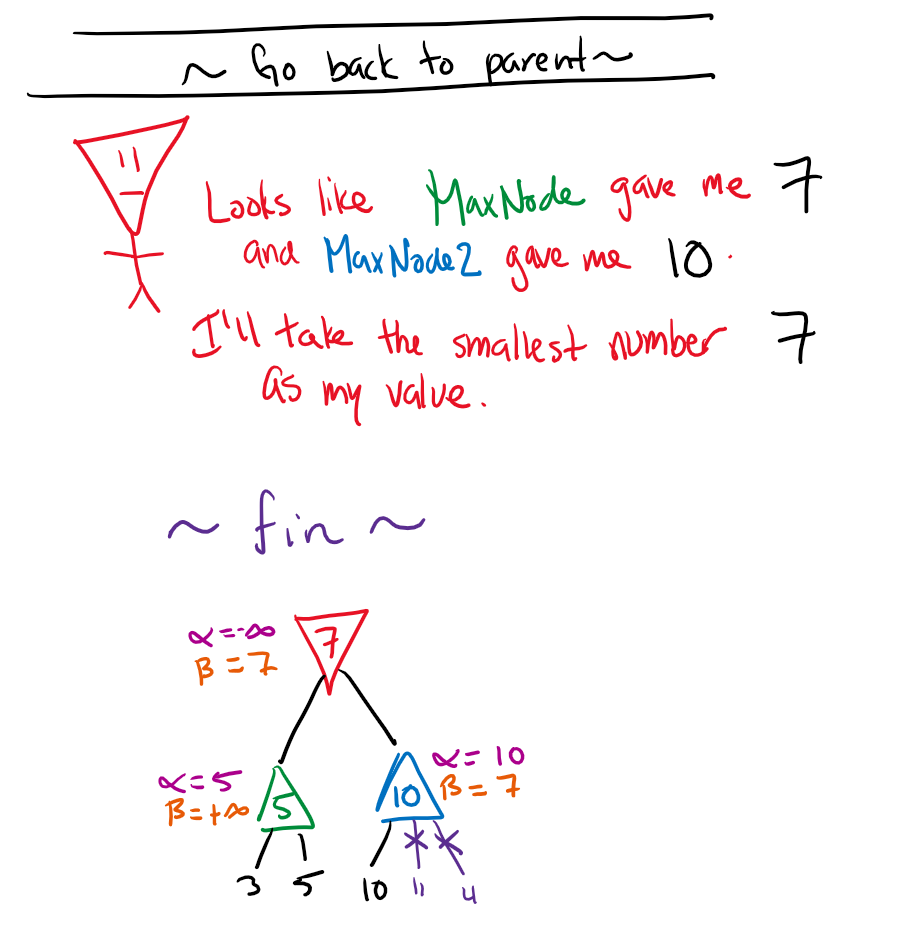 ~ Go back to parent ~
Looks like MaxNode gave me 7
and MaxNode2 gave me 10.
I'll take the smallest number 7
as my value.
~ fin ~
α=-∞
β=7
7
α=5
β=+∞
5
α=10
β=7
10
3 5 10 11 4